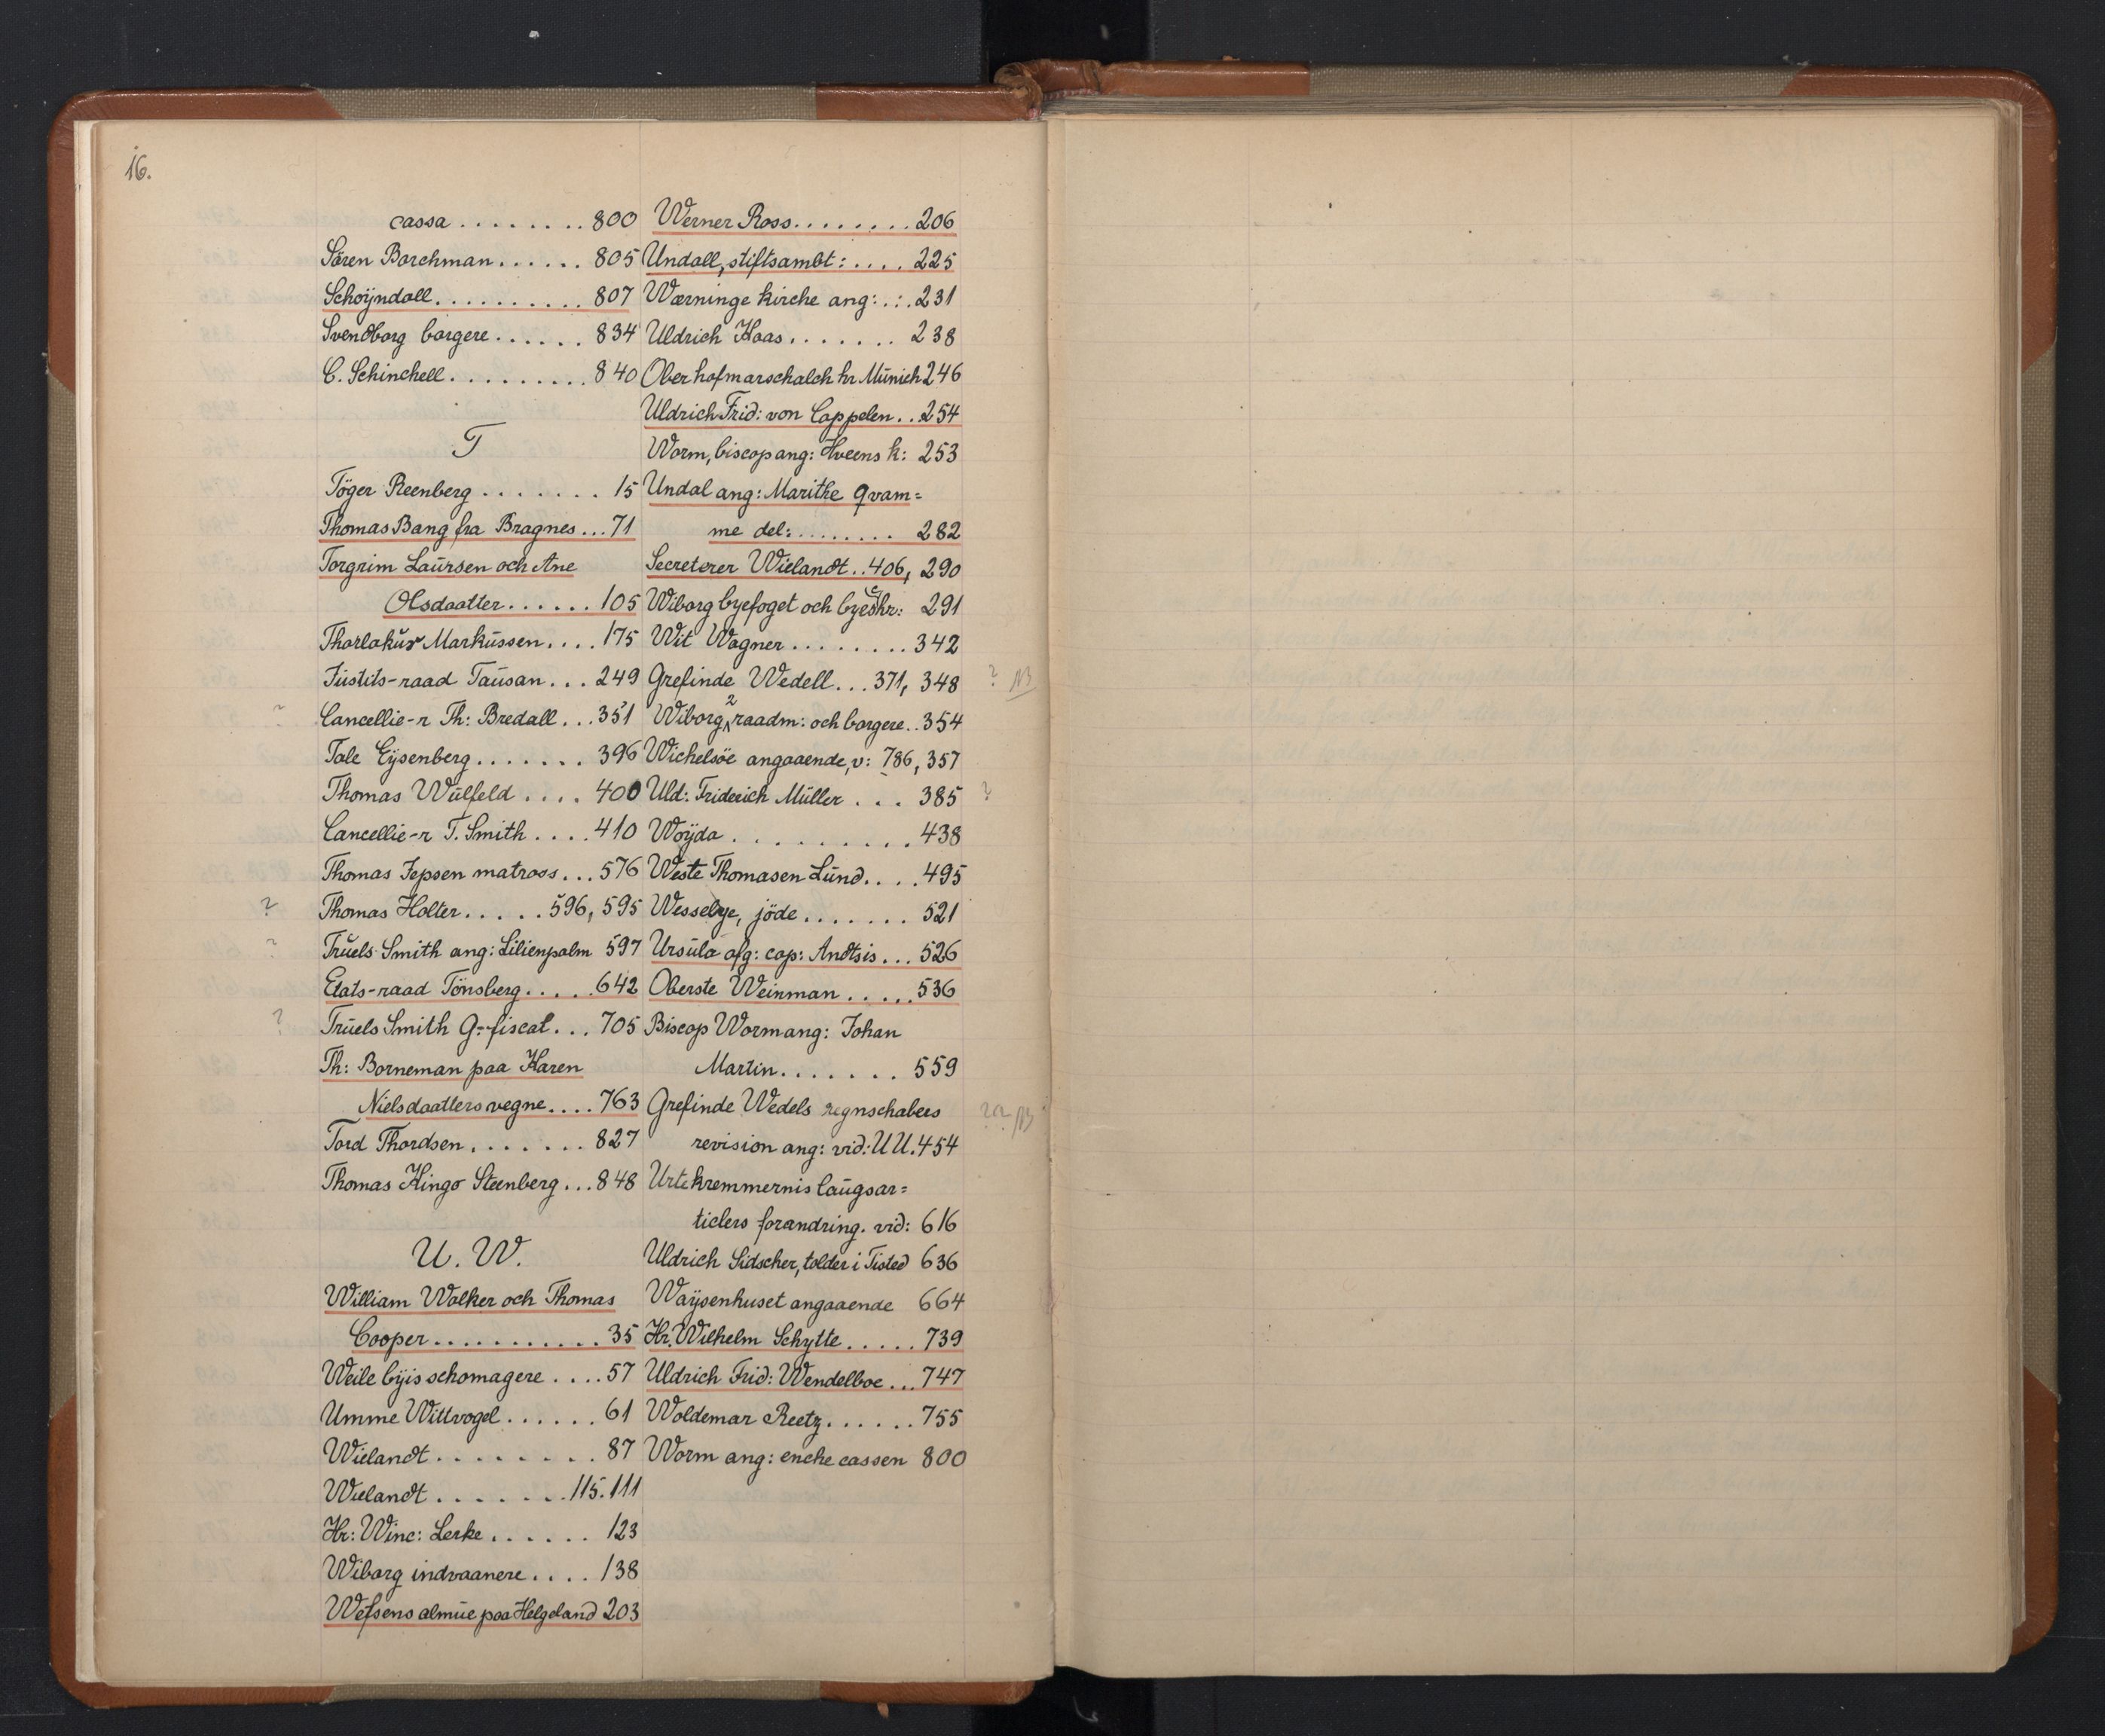 16.
cassa ........ 800
Sören Borchman ...... 805
Schoÿndall .......... 807
Svendborg borgere ...... 834
C. Schinchell ......... 840
T
Töger Reenberg ....... 15
Thomas Bang fra Bragnes ... 71
Torgrim Laursen och Ane
Olsdaatter ...... 105
Thorlakŭr Markŭssen .... 175
Jŭstits-raad Taŭsan ... 249
? Cancellie-r Th: Bredall ... 351
Tale Eÿsenberg ....... 396
Thomas Wŭlfeld .... 400
Cancellie-r T. Smith .... 410
Thomas Jepsen matroos ... 576
? Thomas Holter ..... 596, 595
? Trŭels Smith ang: Lilienpalm 597
Etats-raad Tönsberg ..... 642
? Trŭels Smith G-fiscal ... 705
Th: Borneman paa Karen
Nielsdaatters vegne .... 763
Tord Thordsen ....... 827
Thomas Kingo Steenberg ... 848
U. W.
William Walker och Thomas
Cooper ........... 35
Weile bÿis schomagere .... 57
Umme Wittvogel ...... 61
Wielandt ........ 87
Wielandt ....... 115. 111
Hr: Winc: Lerke ...... 123
Wiborg indvaanere .... 138
Wefsens almŭe paa Helgeland 203
Werner Ross ........ 206
Undall, stiftsambt: .... 225
Wærninge kirche ang: .:. 231
Uldrich Kaas ....... 238
Ober hofmarschalch hr Münich 246
Uldrich Frid: von Cappelen .. 254
Worm, biscop ang: Hveens k: 253
Undal ang: Marithe Qvam=
me del: ......... 282
Secreterer Wielandt .. 406, 290
Wiborg byefoget och byeshr: 291
Wit Wagner ......... 342
Grefinde Wedell ... 371, 348 ? NB
Wiborg 2 raadm: och borgere .. 354
Wichelsöe angaaende, v: 786, 357
Uld: Friderich Müller ... 385 ?
Woÿda .......... 438
Weste Thomasen Lŭnd .... 495
Wesselye, jöde ....... 521
Ursŭla afg: cap: Andtsis ... 526
Oberste Weinman ..... 536
Biscop Worm ang: Johan
Martin ....... 559
Grefinde Wedels regnschabers ?? NB
revision ang: vid: U U. 454
Urtekremmernis laŭgsar=
ticlers forandring. vid: 616
Uldrich Sidscher, tolder i Tisted 636
Waÿsenhuset angaaende 664
Hr. Wilhelm Schytte ..... 739
Uldrich Frid: Wendelboe ... 747
Woldemar Reetz ...... 755
Worm ang: enche cassen 800